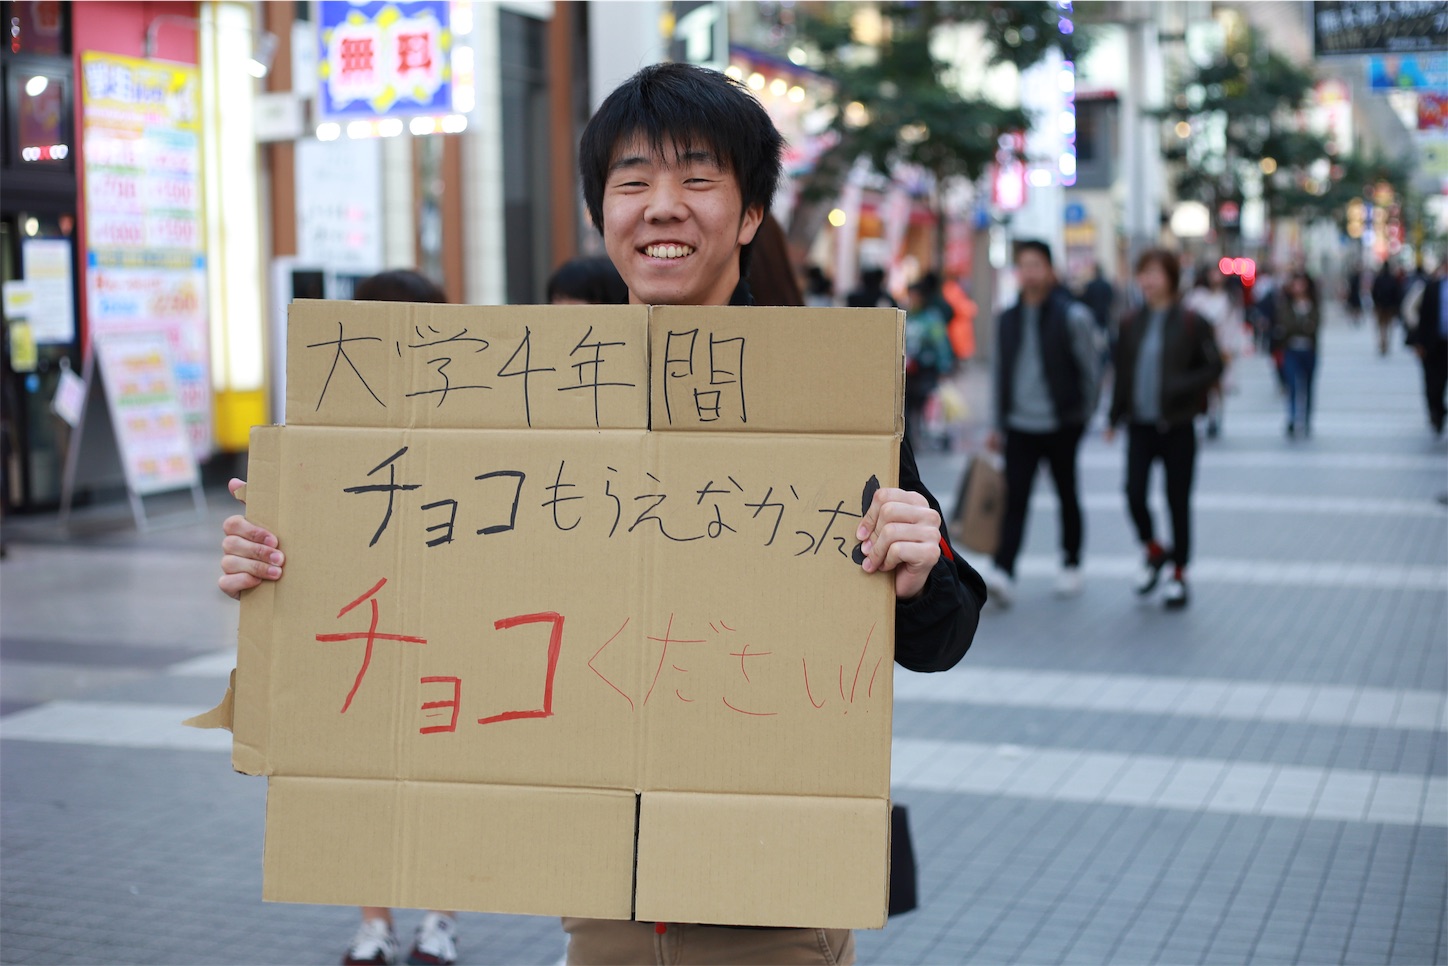 無料
大学4年間
チョコもらえなかった!
チョコください!!